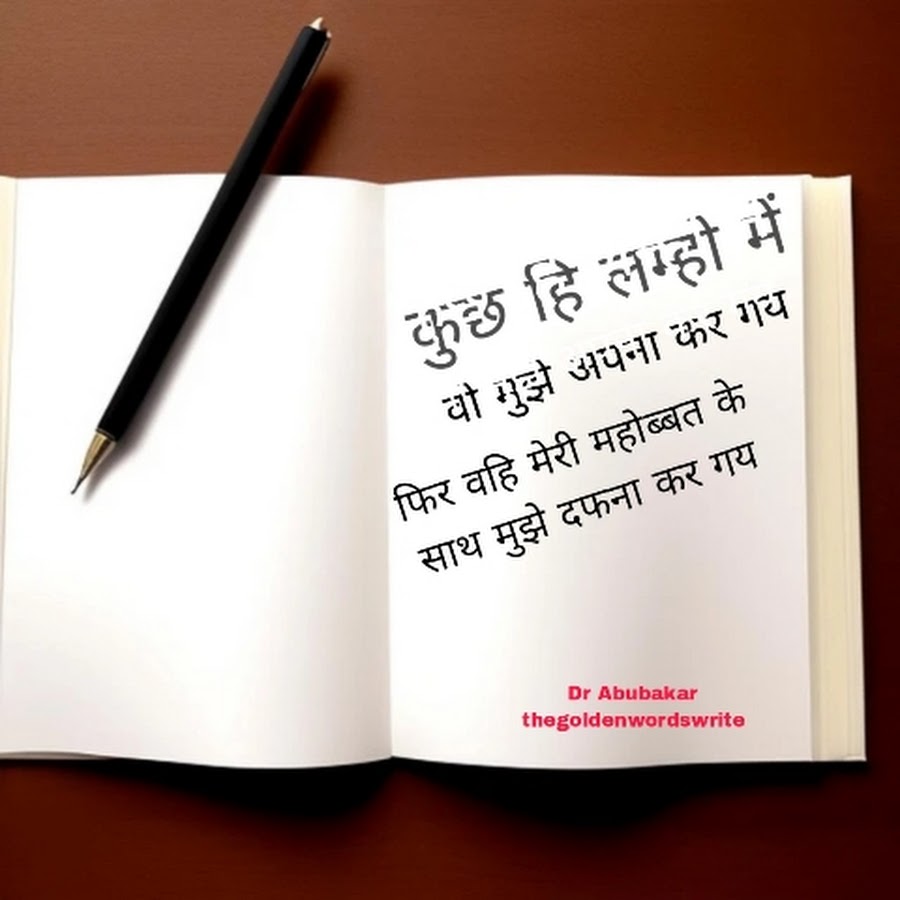 कुछ हि लम्हो में
वो मुझे अपना कर गय
फिर वहि मेरी महोब्बत के
साथ मुझे दफना कर गय
Dr Abubakar
thegoldenwordswrite